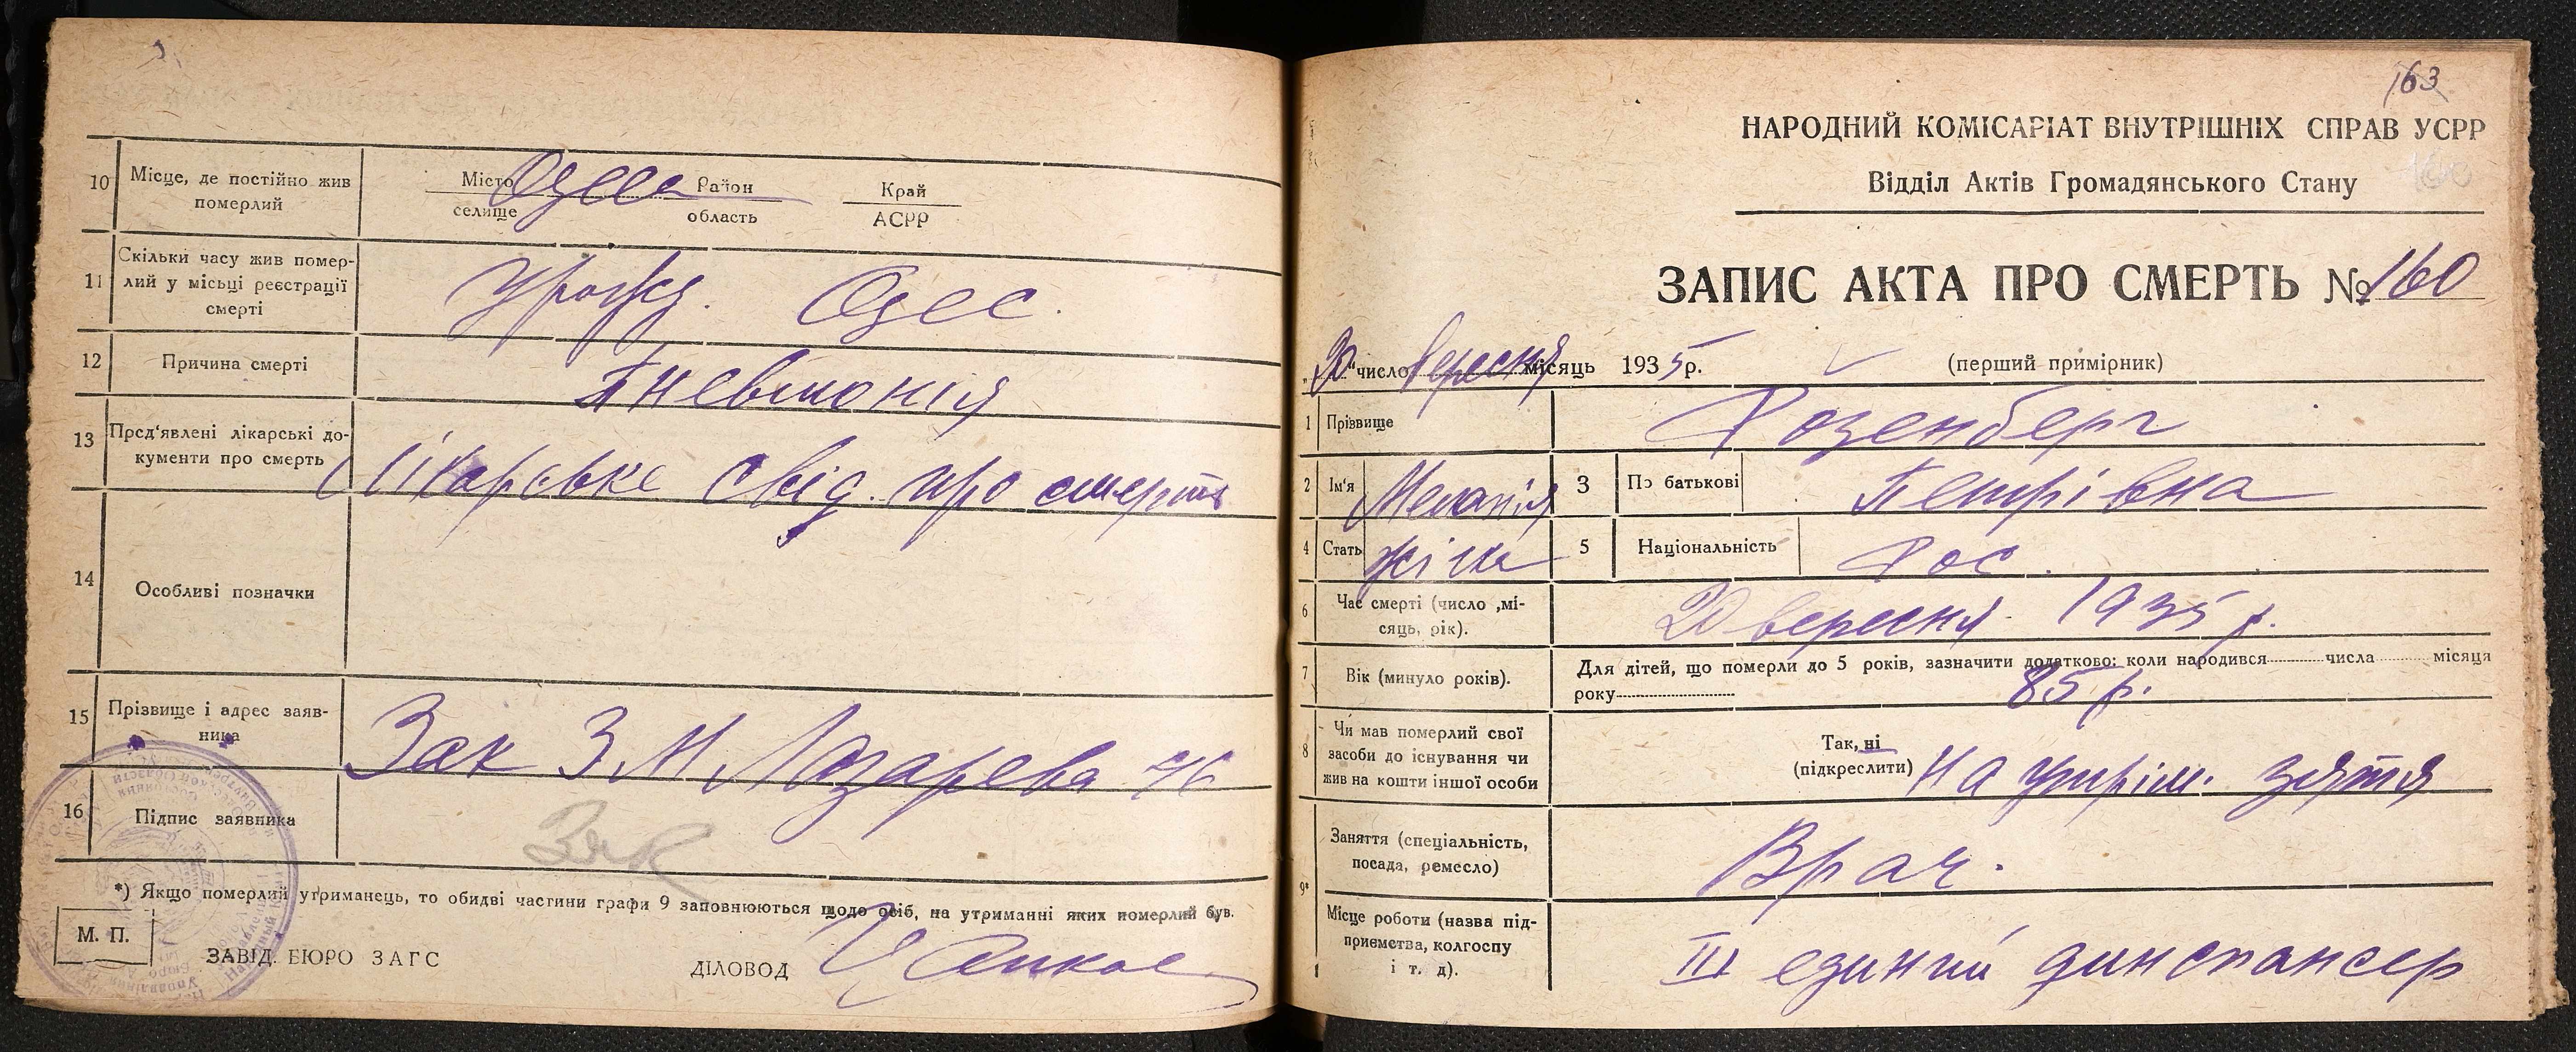 10 Місце, де постійно жив
померлий
Місто Одесса Район Край
селище область АСРР
11 Скільки часу жив помер-
лий у місьці реєстрації
смерті
Урожд. Одес.
12 Причина смерті Пневмонія
13 Пред'явлені лікарські до-
кументи про смерть
Лікарське свід. про смерть
14 Особливі позначки
15 Прізвище і адрес заяв-
ника
Зак З М Лазарева 76
16 Підпис заявника Зак
*) Якщо померлий утриманець, то обидві частини графи 9 заповнюються щодо осіб, на утриманні яких померлий був.
М. П.
ЗАВІД. БЮРО ЗАГС
ДІЛОВОД
163
НАРОДНИЙ КОМІСАРІАТ ВНУТРІШНІХ СПРАВ УСРР
Відділ Актів Громадянського Стану
160
ЗАПИС АКТА ПРО СМЕРТЬ № 160
„20" число вересня місяць 1935 р. (перший примірник)
1 Прізвище Розенберг
2 Ім'я Меланія 3 По батькові Петрівна
4 Стать жіна 5 Національність Рос.
6 Час смерті (число ,мі-
сяць, рік).
20 вересня 1935 р.
7 Вік (минуло років).
Для дітей, що померли до 5 років, зазначити додатково: коли народився числа місяця
року 85 р.
8 Чи мав померлий свої
засоби до існування чи
жив на кошти іншої особи
Так, ні
(підкреслити) на утрім. зятя
9*
Заняття (спеціальність,
посада, ремесло)
Врач.
Місце роботи (назва під-
приємства, колгоспу
і т. д).
III единий динспансер